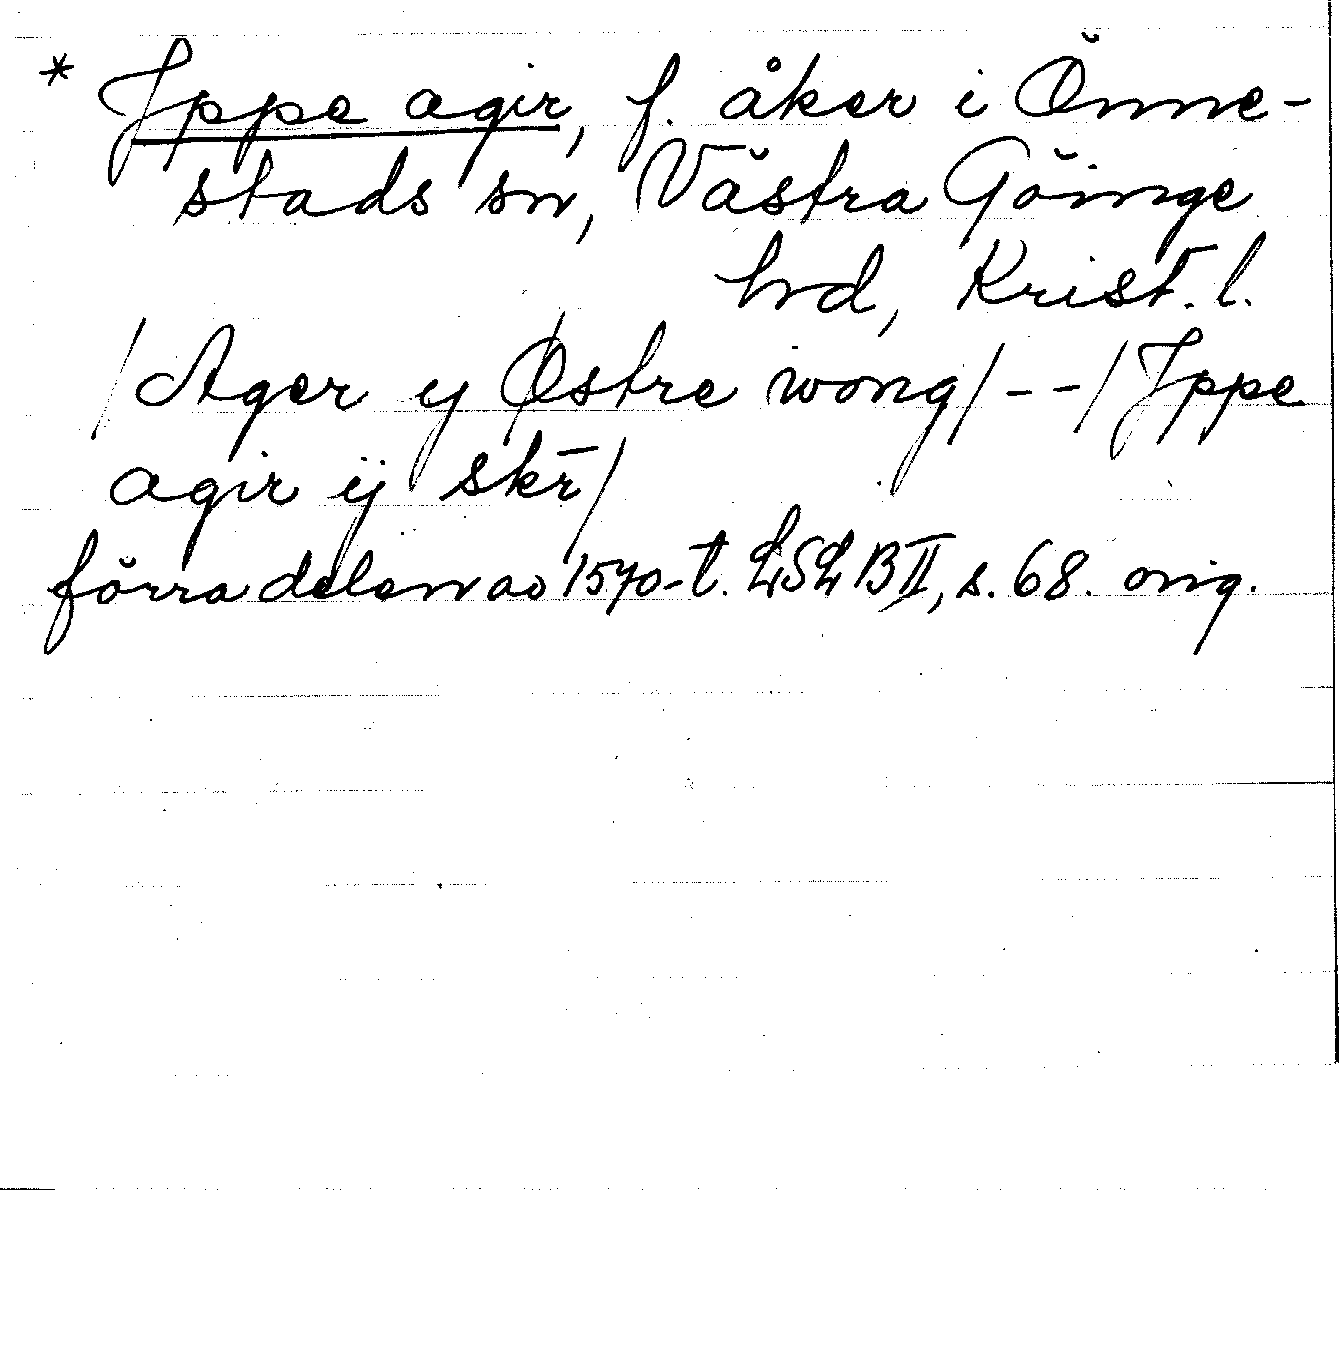 * Jppe agir, f. åker i Önne-
stads sn, Västra Göinge
hd, Krist. l.
/Ager ij Østre wong/--/Jppe
agir ij skr̄/
förra delen av 1570-t. LSLB II, s. 68. orig.